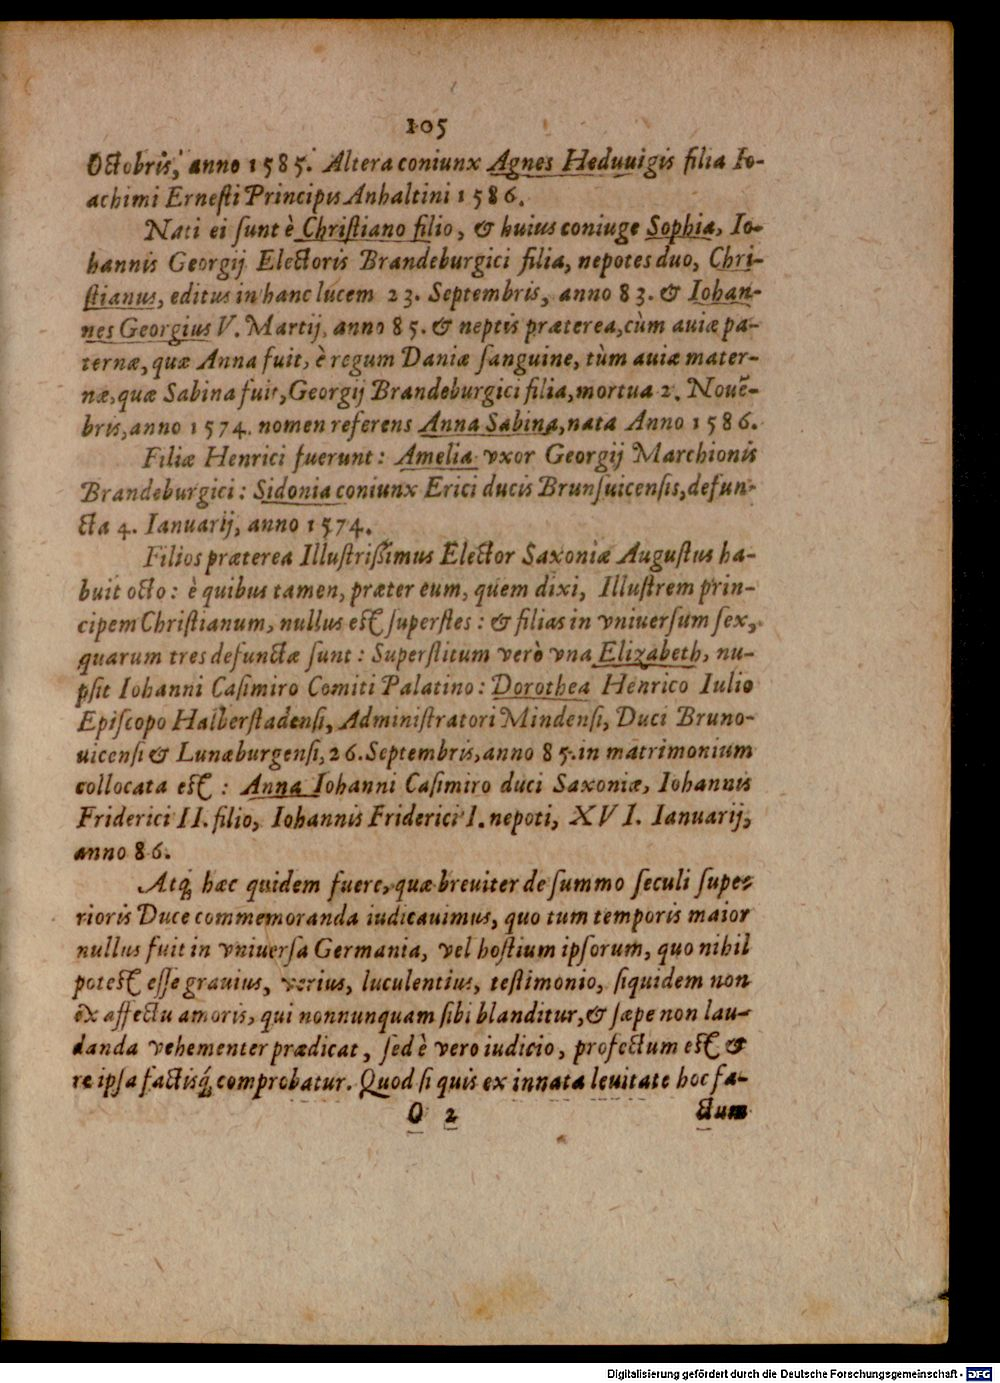 105
Octobris, anno 1585. Altera coniunx Agnes Heduuigis filia Io-
achimi Ernesti Principis Anhaltini 1586.
Nati ei sunt è Christiano filio, & huius coniuge Sophia, Io-
hannis Georgij Electoris Brandeburgici filia, nepotes duo, Chri-
stianus, editus in hanc lucem 23. Septembris, anno 83. & Iohan-
nes Georgius V. Martij, anno 85. & neptis præterea, cùm auiæ pa-
ternæ, quæ Anna fuit, è regum Daniæ sanguine, tùm auiæ mater-
næ, quæ Sabina fuit, Georgij Brandeburgici filia, mortua 2. Nouē-
bris, anno 1574. nomen referens Anna Sabina, nata Anno 1586.
Filiæ Henrici fuerunt: Amelia vxor Georgij Marchionis
Brandeburgici: Sidonia coniunx Erici ducis Brunsuicensis, defun-
cta 4. Ianuarij, anno 1574.
Filios præterea Illustrißimus Elector Saxoniæ Augustus ha-
buit octo: è quibus tamen, præter eum, quem dixi, Illustrem prin-
cipem Christianum, nullus est superstes: & filias in vniuersum sex,
quarum tres defunctæ sunt: Superstitum verò vna Elizabeth, nu-
psit Iohanni Casimiro Comiti Palatino: Dorothea Henrico Iulio
Episcopo Halberstadensi, Administratori Mindensi, Duci Bruno-
uicensi & Lunæburgensi, 26. Septembris, anno 85. in matrimonium
collocata est: Anna Iohanni Casimiro duci Saxoniæ, Iohannis
Friderici II. filio, Iohannis Friderici I. nepoti, XVI. Ianuarij,
anno 86.
Atq́; hæc quidem fuere, quæ breuiter de summo seculi supe-
rioris Duce commemoranda iudicauimus, quo tum temporis maior
nullus fuit in vniuersa Germania, vel hostium ipsorum, quo nihil
potest esse grauius, verius, luculentius, testimonio, siquidem non
ex affectu amoris, qui nonnunquam sibi blanditur, & sæpe non lau-
danda vehementer prædicat, sed è vero iudicio, profectum est &
re ipsa factisq́; comprobatur. Quod si quis ex innata leuitate hoc fa-
O 2 ctum
Digitalisierung gefördert durch die Deutsche Forschungsgemeinschaft - DFG